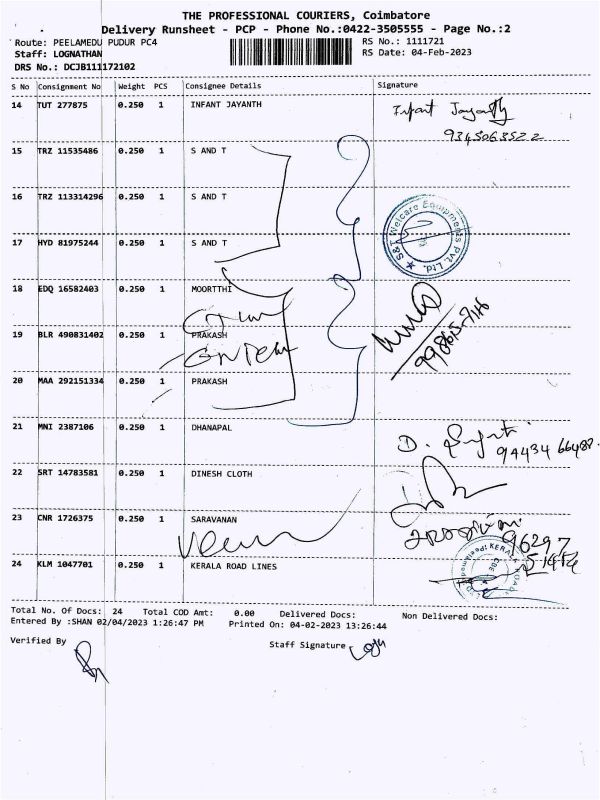 THE PROFESSIONAL COURIERS, Coimbatore
Delivery Runsheet - PCP - Phone No.:0422-3505555 - Page No.:2
Route: PEELAMEDU PUDUR PC4 RS No.: 1111721
Staff: LOGNATHAN RS Date: 04-Feb-2023
DRS No.: DCJB111172102
S No Consignment No Weight PCS Consignee Details Signature
14 TUT 277875 0.250 1 INFANT JAYANTH Infant Jayanth
9345063522
15 TRZ 11535486 0.250 1 S AND T
16 TRZ 113314296 0.250 1 S AND T
S&T Welcare Equipments Pvt. Ltd.
17 HYD 81975244 0.250 1 S AND T
18 EDQ 16582403 0.250 1 MOORTTHI
19 BLR 490831402 0.250 1 PRAKASH
20 MAA 292151334 0.250 1 PRAKASH
21 MNI 2387106 0.250 1 DHANAPAL D.
94434 66488
22 SRT 14783581 0.250 1 DINESH CLOTH
23 CNR 1726375 0.250 1 SARAVANAN
96297
24 KLM 1047701 0.250 1 KERALA ROAD LINES
Total No. Of Docs: 24 Total COD Amt: 0.00 Delivered Docs: Non Delivered Docs:
Entered By :SHAN 02/04/2023 1:26:47 PM Printed On: 04-02-2023 13:26:44
Verified By Staff Signature